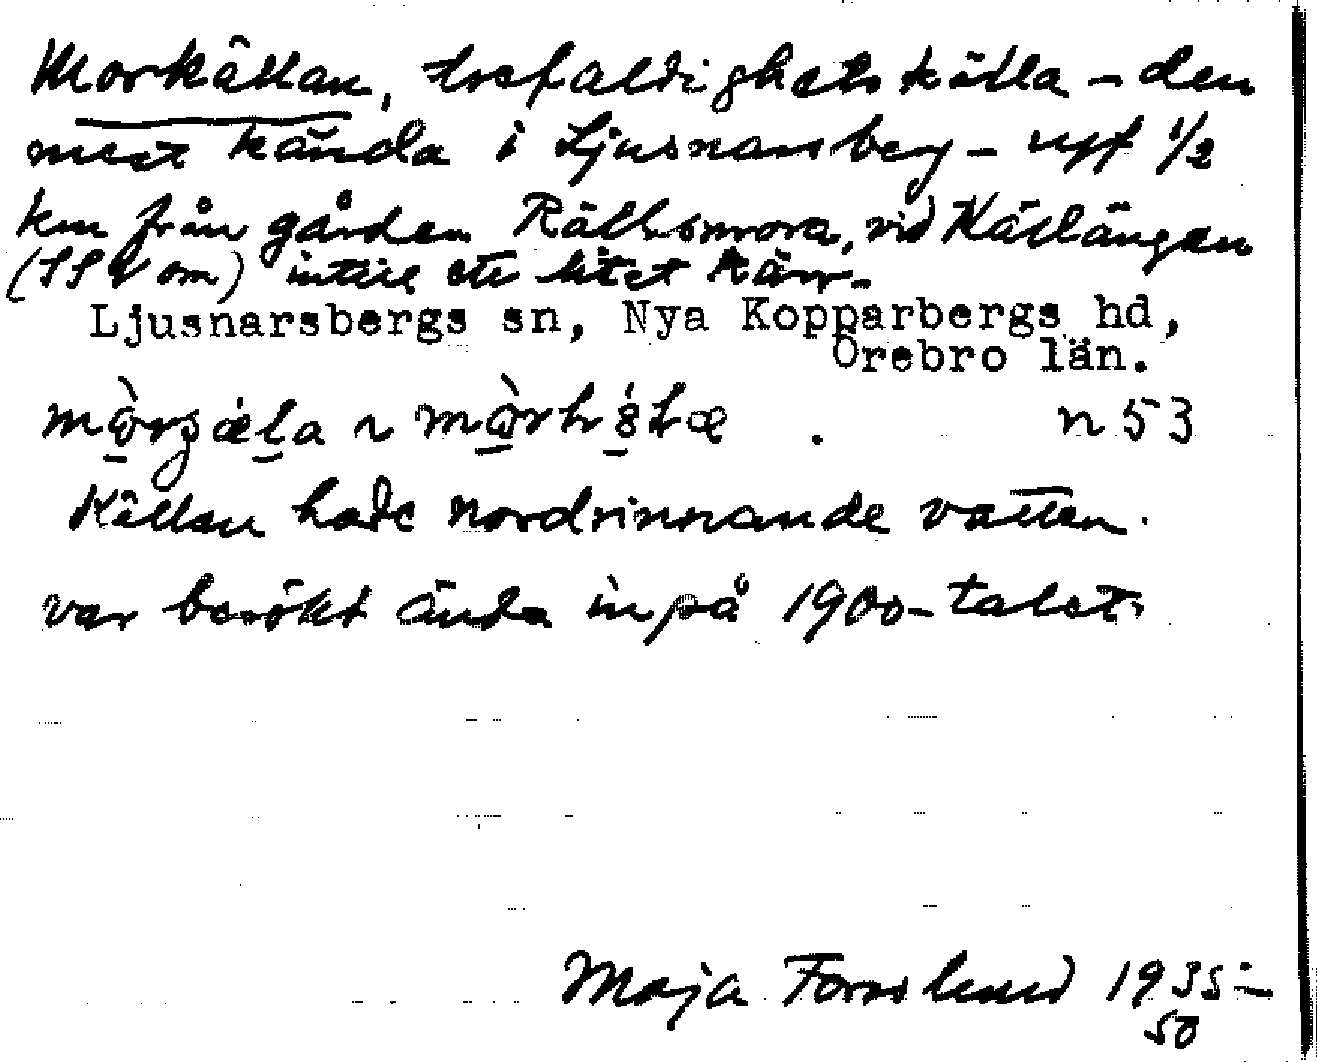 Morkällan, trefaldighetskälla – den
mest kända i Ljusnarsberg – ungf 1/2
km från gården Rällsmora, vid Källängen
(SSV om) intill ett litet kärr.
Ljusnarsbergs sn, Nya Kopparbergs hd,
Örebro län.
n 53
Källan hade nordrinnande vatten.
var besökt ända inpå 1900-talet.
Maja Forsslund 1935–
50